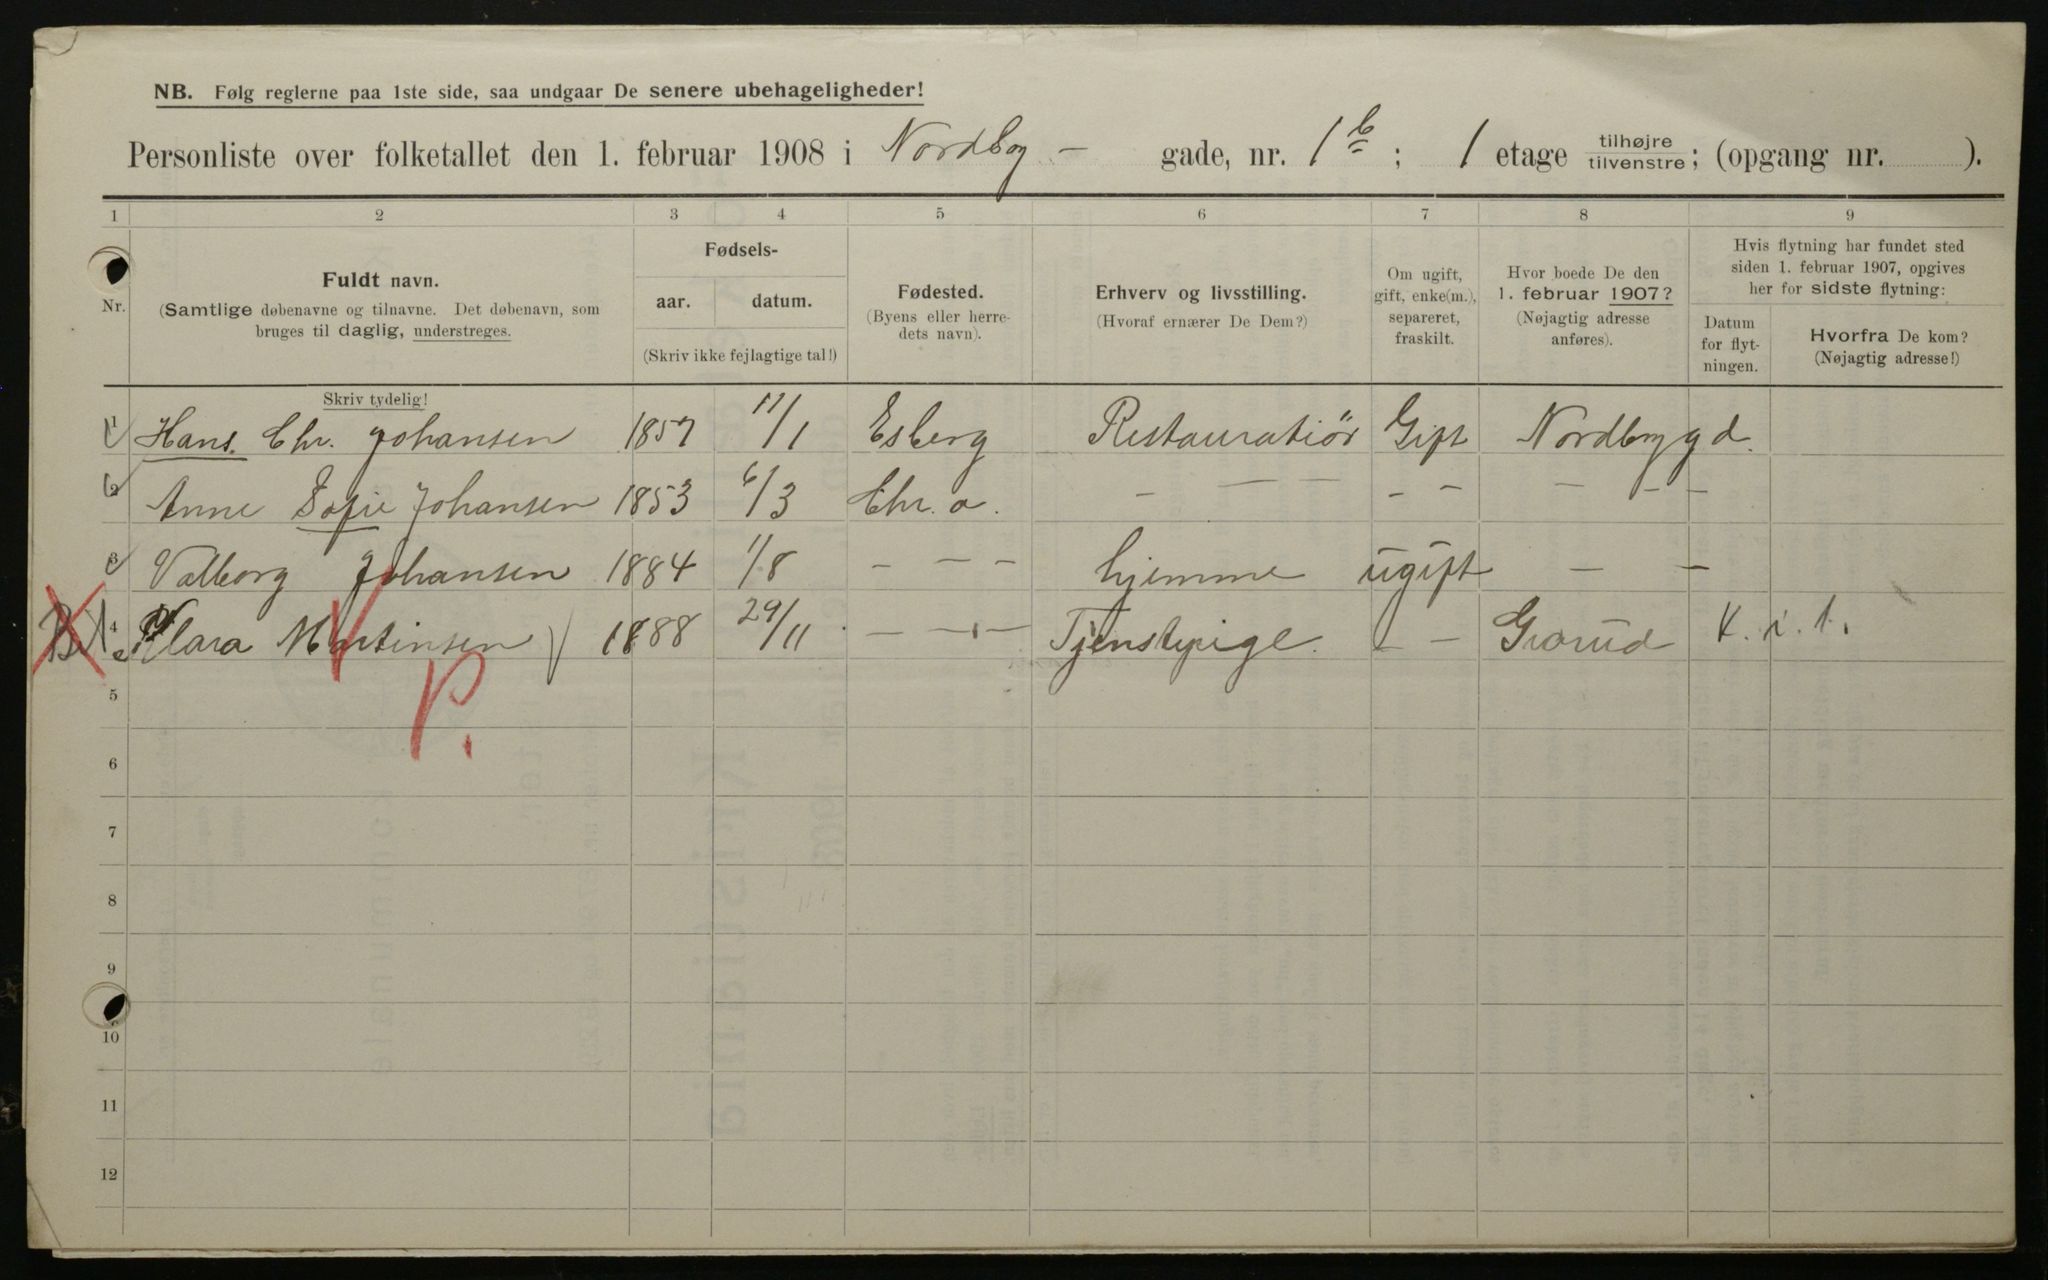 NB. Følg reglerne paa 1ste side, saa undgaar De senere ubehageligheder!
Personliste over folketallet den 1. februar 1908 i Nordby - gade, nr. 1b ; 1 etage tilhøjre tilvenstre ; (opgang nr. ).
1 2 3 4 5 6 7 8 9
Nr.
Fuldt navn.
(Samtlige døbenavne og tilnavne. Det døbenavn, som
bruges til daglig, understreges.
Fødsels-
aar. datum.
(Skriv ikke fejlagtige tal!)
Fødested.
(Byens eller herre-
dets navn).
Erhverv og livsstilling.
(Hvoraf ernærer De Dem?)
Om ugift,
gift, enke(m.),
separeret,
fraskilt.
Hvor boede De den
1. februar 1907?
(Nøjagtig adresse
anføres).
Hvis flytning har fundet sted
siden 1. februar 1907, opgives
her for sidste flytning:
Datum
for flyt-
ningen.
Hvorfra De kom?
(Nøjagtig adresse!)
Skriv tydelig!
1 Hans. Chr. Johansen 1857 11/1 Esberg Restauratiør Gift Nordbygd.
2 Anne Sofie Johansen 1853 6/3 Chr. a. - - - - - - - -
3 Valborg Johansen 1884 1/8 - - - hjemme ugift - -
4 Klara Martinsen 1888 29/11 - - - Tjenstpige. - - Grorud K. i. 1.
P.
5
6
7
8
9
10
11
12